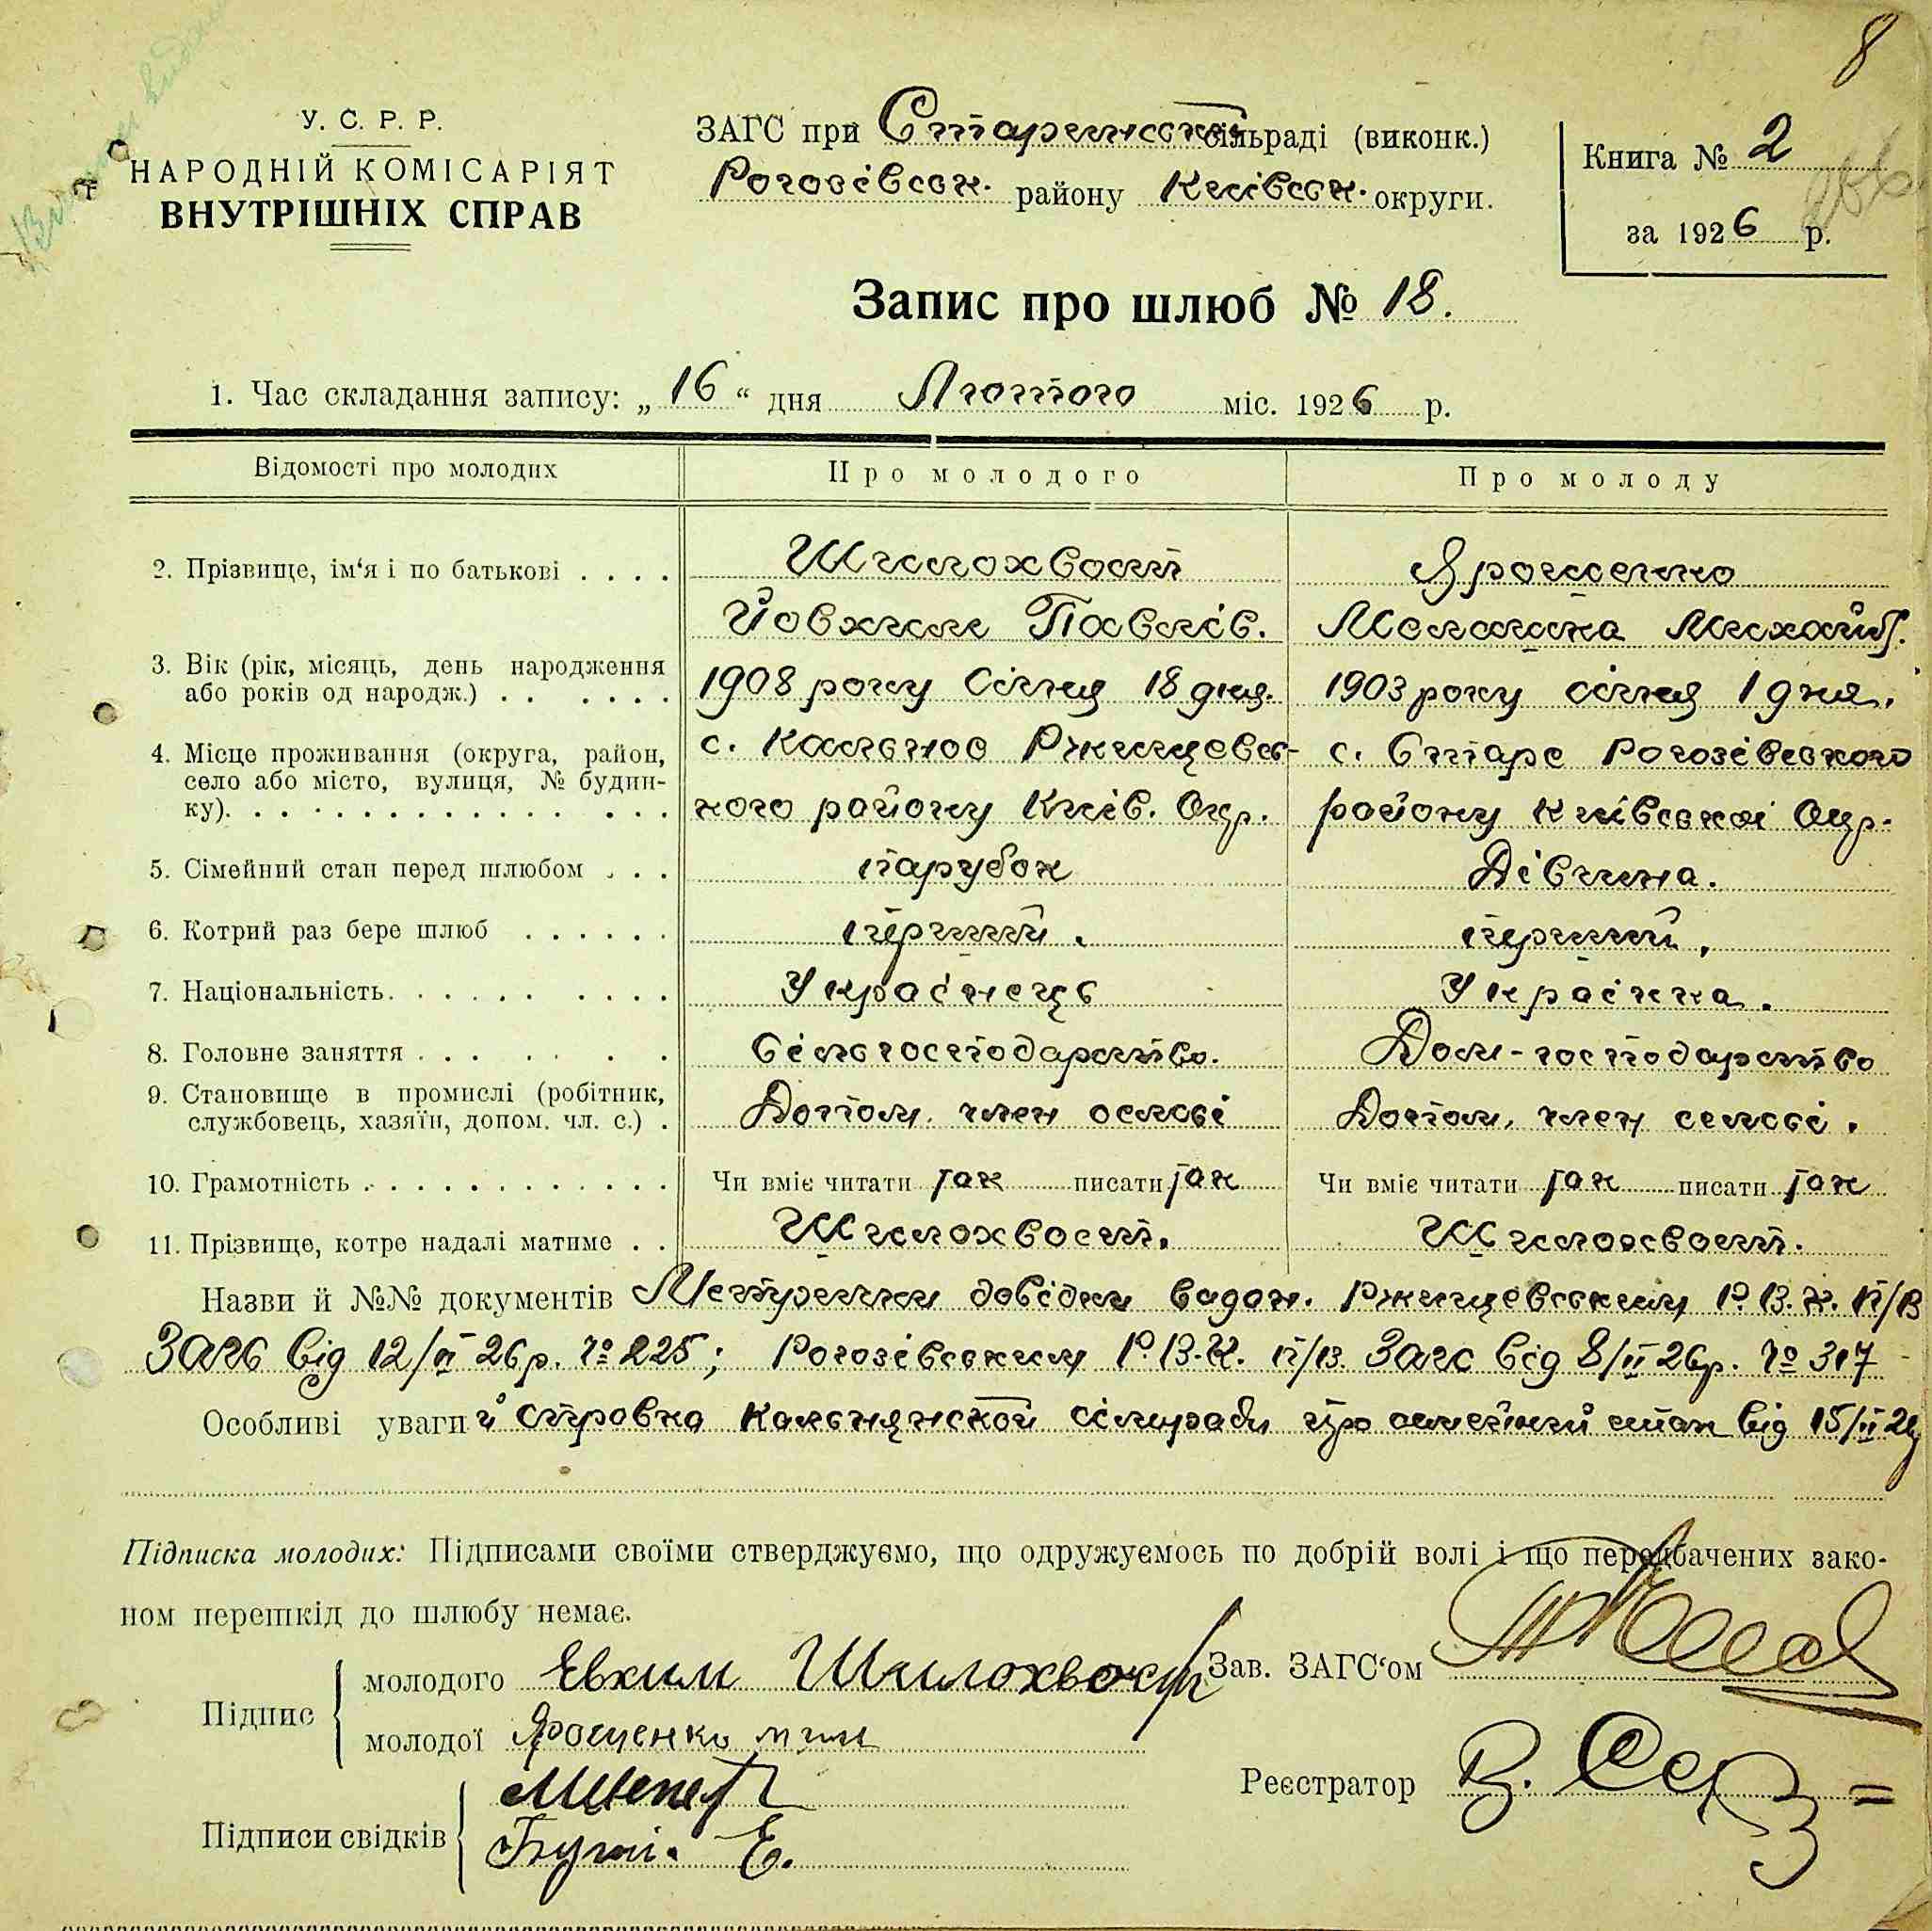 8
У. С. Р. Р.
НАРОДНІЙ КОМІСАРІЯТ
ВНУТРІШНІХ СПРАВ
ЗАГС при Старинській сільраді (виконк.)
Рогозівськ. району Київськ. округи.
Книга № 2
за 1926 р.
Запис про шлюб № 18.
1. Час складання запису: „ 16 “ дня Лютого міс. 1926 р.
Відомості про молодих Про молодого Про молоду
2. Прізвище, ім‘я і по батькові . . . . Шилохвост Ярошенко
Йовхим Павлів. Мелашка Михайл.
3. Вік (рік, місяць, день народження
або років од народж.) . . . . . . 1908 року Січня 18 дня. 1903 року січня 1 дня.
4. Місце проживання (округа, район, с. Кальное Ржищевсь- с. Старе Рогозівського
село або місто, вулиця, № будин-
ку). . . . . . . . . . . . . . . . кого району Київ. Окр. району Київської Окр.
5. Сімейний стан перед шлюбом . . . парубок Дівчина.
6. Котрий раз бере шлюб . . . . . . перший. перший.
7. Національність. . . . . . . . . . Українець Українка.
8. Головне заняття . . . . . . . Сільгосподарство. Дом-господарство
9. Становище в промислі (робітник,
службовець, хазяїн, допом. чл. с.) . Допом. член семові Допом. член семові.
10. Грамотність . . . . . . . . . . . . Чи вміє читати так писати так Чи вміє читати так писати так
11. Прізвище, котре надалі матиме . . Шилохвост. Шилохвост.
Назви й №№ документів Метрички довідки видан. Ржищевським Р.В.К. П/В
ЗАГС від 12/II 26р. № 225; Рогозівським Р.В.К. П/В. Загс від 8/II 26р. № 317
Особливі уваги й справка Кальнянской сільради про семейний стан від 15/II 26
Підписка молодих: Підписами своїми стверджуємо, що одружуємось по добрій волі і що передбачених зако-
ном перешкід до шлюбу немає.
Підпис
молодого Евхим Шилохвост
молодої Ярошенко
Зав. ЗАГС‘ом
Реєстратор В.
Підписи свідків
Е.